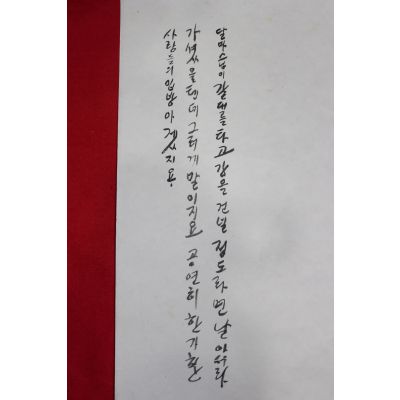 달마스님이 갈대를 타고 강을 건널 정도라면 날아서라도
가셨을텐데 그러게 말이지요 공연히 한가한
사람들의 입방아 겠지용